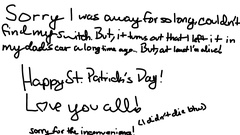 Sorry I was away for so long, couldn't
find my switch. But, it turns out that I left it in
my dads car a long time ago. But, at least I'm alive!
Happy St. Patrick's Day!
Love you all!
(I didn't die btw)
sorry for the inconvenience!